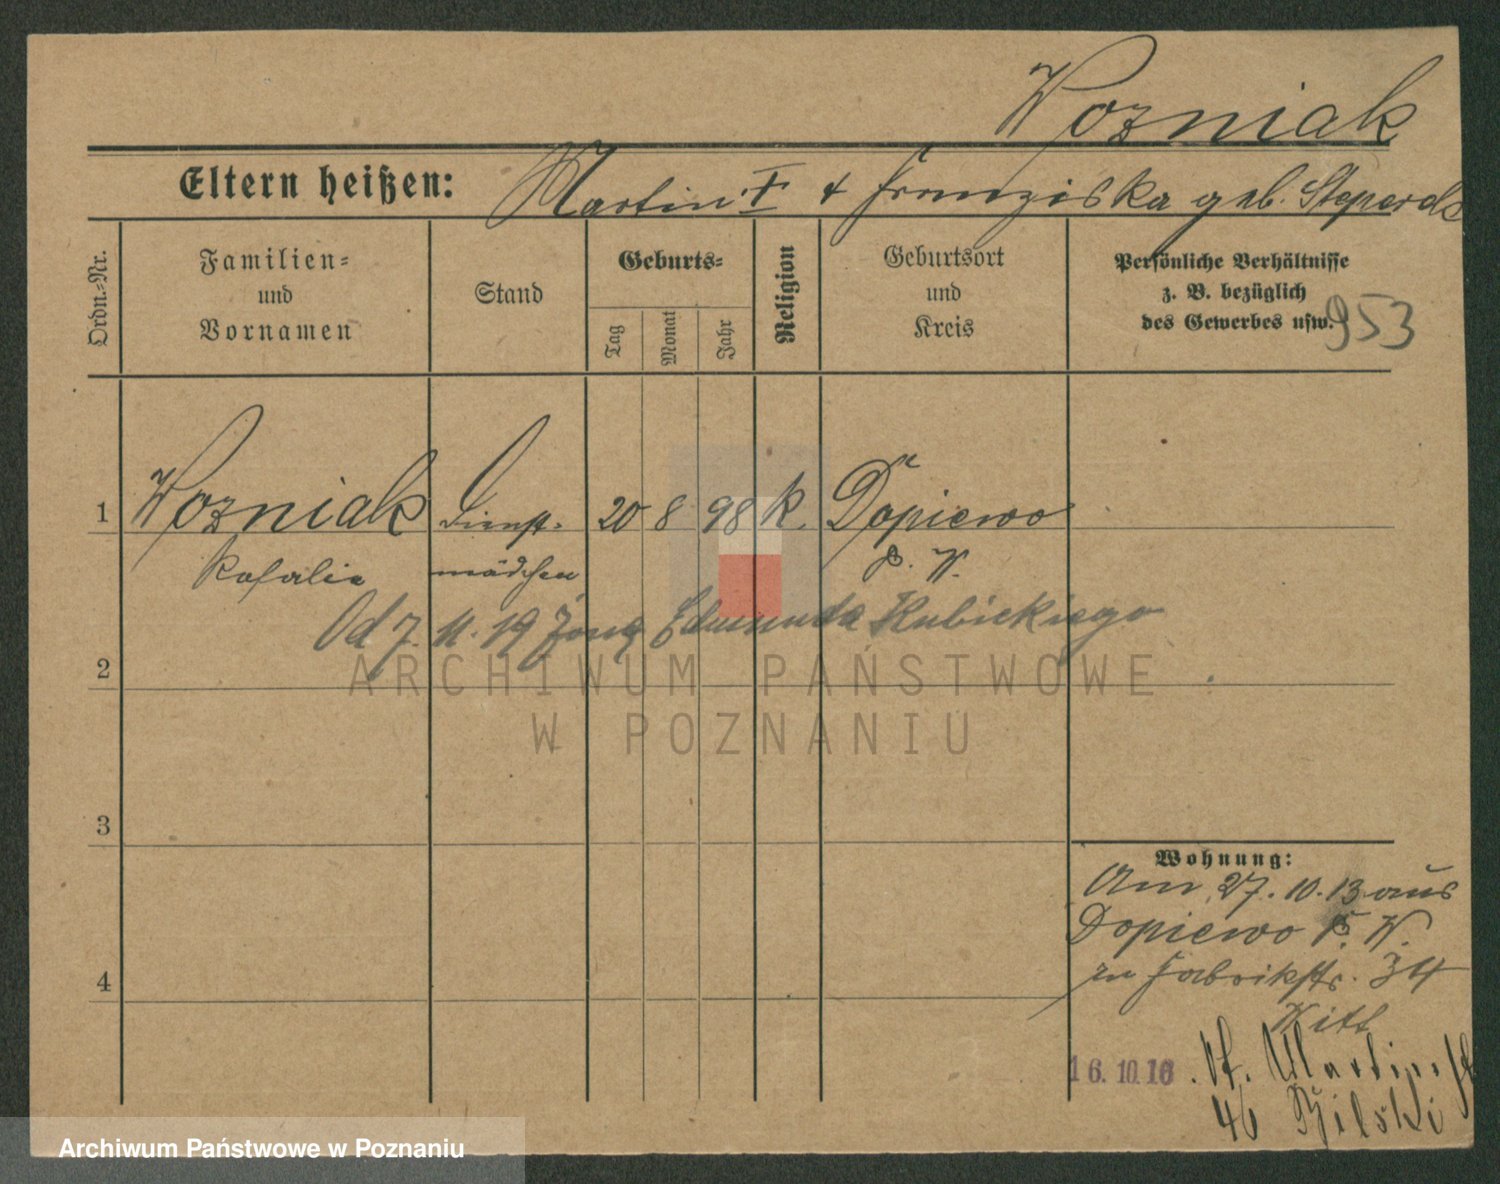 Wozniak
Eltern heißen: Martin I + Franziska geb.
Ordn.=Nr.
Familien= und Vornamen
Stand
Geburts=
Tag
Monat
Jahr
Religion
Geburtsort und Kreis
Persönliche Verhältnisse
z. B. bezüglich
des Gewerbes usw.
953
1 Wozniak Dienst= 20 8 98 k. Dopiewo
Rosalie mädchen P. W.
Od 7. 11. 19 żoną Edmunda Kubickiego
2
ARCHIWUM PAŃSTWOWE
W POZNANIU
3
Wohnung:
Am 27. 10. 13 aus
Dopiewo P. W.
4
zu Fabrikstr. 34
Kitt
16. 10. 16 . St. Martinst
46 Bilski
Archiwum Państwowe w Poznaniu